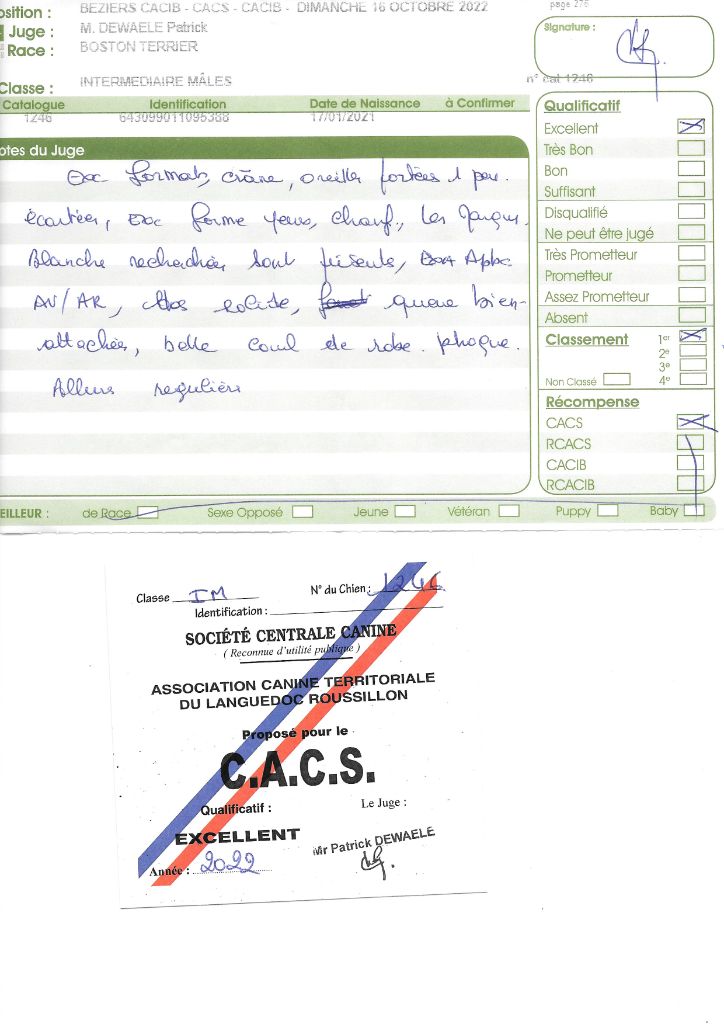 position : BEZIERS CACIB - CACS - CACIB - DIMANCHE 16 OCTOBRE 2022 page 276
Juge : M. DEWAELE Patrick
Race : BOSTON TERRIER
Signature :
Classe : INTERMEDIAIRE MÂLES n° cat 1246
Catalogue Identification Date de Naissance à Confirmer
1246 643099011095388 17/01/2021
Qualificatif
Excellent
Très Bon
Bon
Suffisant
Disqualifié
Ne peut être jugé
Très Prometteur
Prometteur
Assez Prometteur
Absent
Classement 1er
2e
3e
Non Classé 4e
Récompense
CACS
RCACS
CACIB
RCACIB
otes du Juge
Exc format, crâne, oreilles portées 1 peu
écartées, exc forme yeux, chanf., les
Blanche recherchées sont présents,
AV/AR, solide, queue bien
attachée, belle coul de robe.
Allures régulières
EILLEUR : de Race Sexe Opposé Jeune Vétéran Puppy Baby
Classe IM N° du Chien : 1246
Identification :
SOCIÉTÉ CENTRALE CANINE
( Reconnue d'utilité publique )
ASSOCIATION CANINE TERRITORIALE
DU LANGUEDOC ROUSSILLON
Proposé pour le
C.A.C.S.
Qualificatif : Le Juge :
EXCELLENT Mr Patrick DEWAELE
Année : 2022